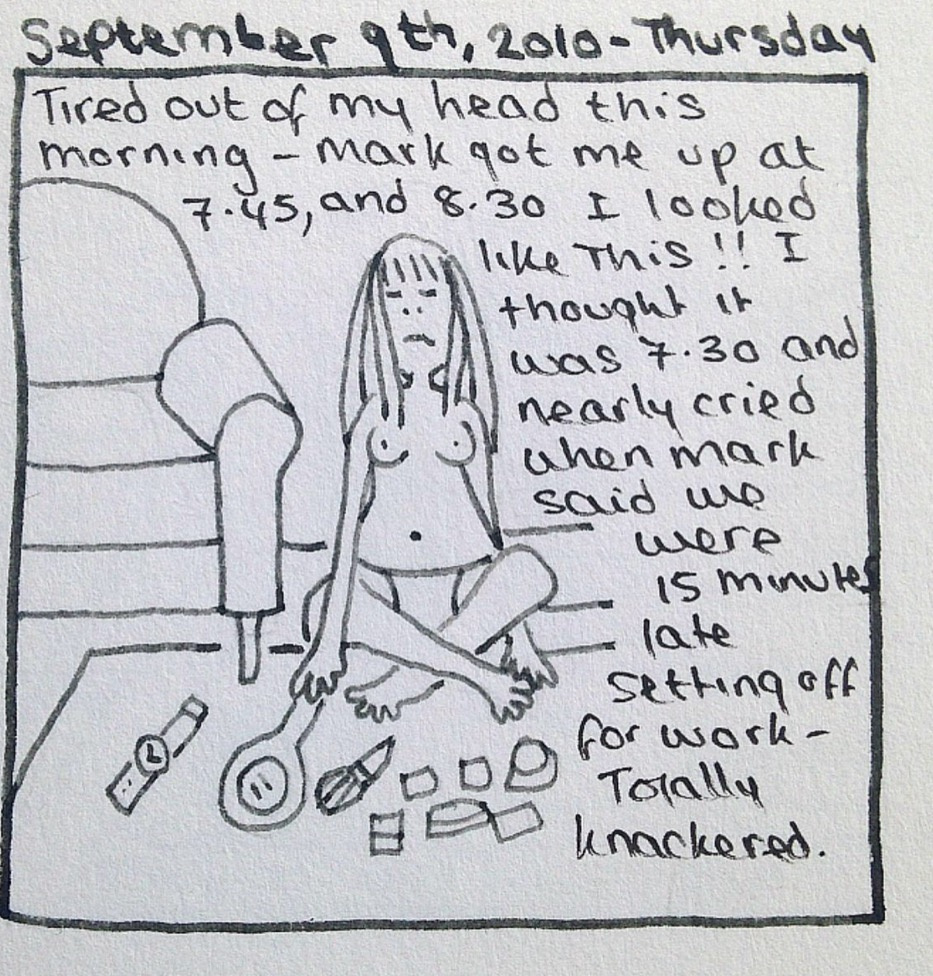 September 9th, 2010 - Thursday
Tired out of my head this
morning - mark got me up at
7.45, and 8.30 I looked
like this!! I
thought it
was 7.30 and
nearly cried
when mark
said we
were
15 minutes
late
setting off
for work -
Totally
knackered.